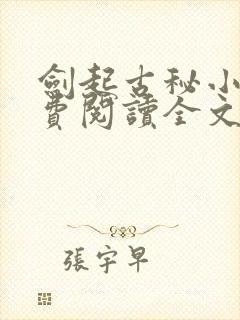 劍起古秘小
費閱讀全文
張宇早